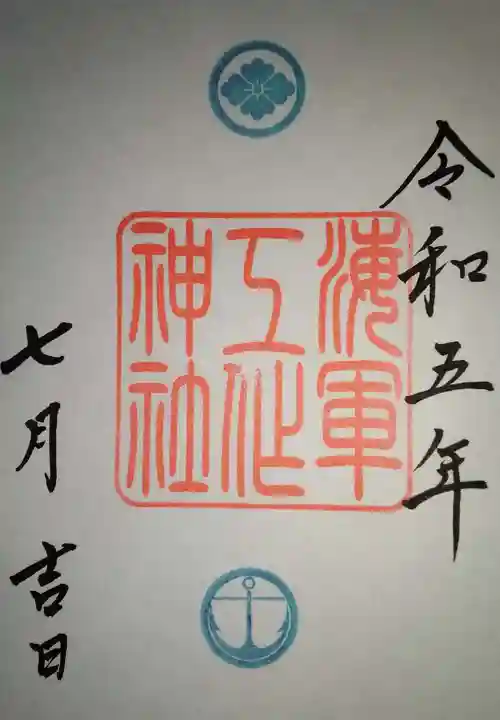 令和五年
海軍
工作
神社
七月吉日